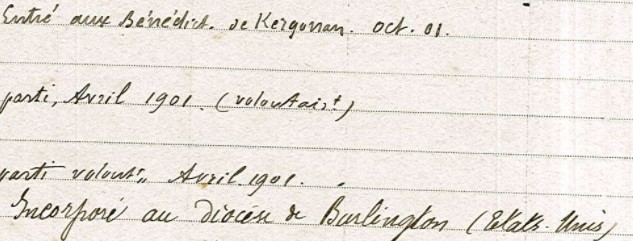 Entré aux Bénédict. de Kergonan. oct. 01.
parti, Avril 1901. (volontairt)
parti volontr, Avril. 1901.
Incorporé au diocèse de Burlington (Etats-Unis)